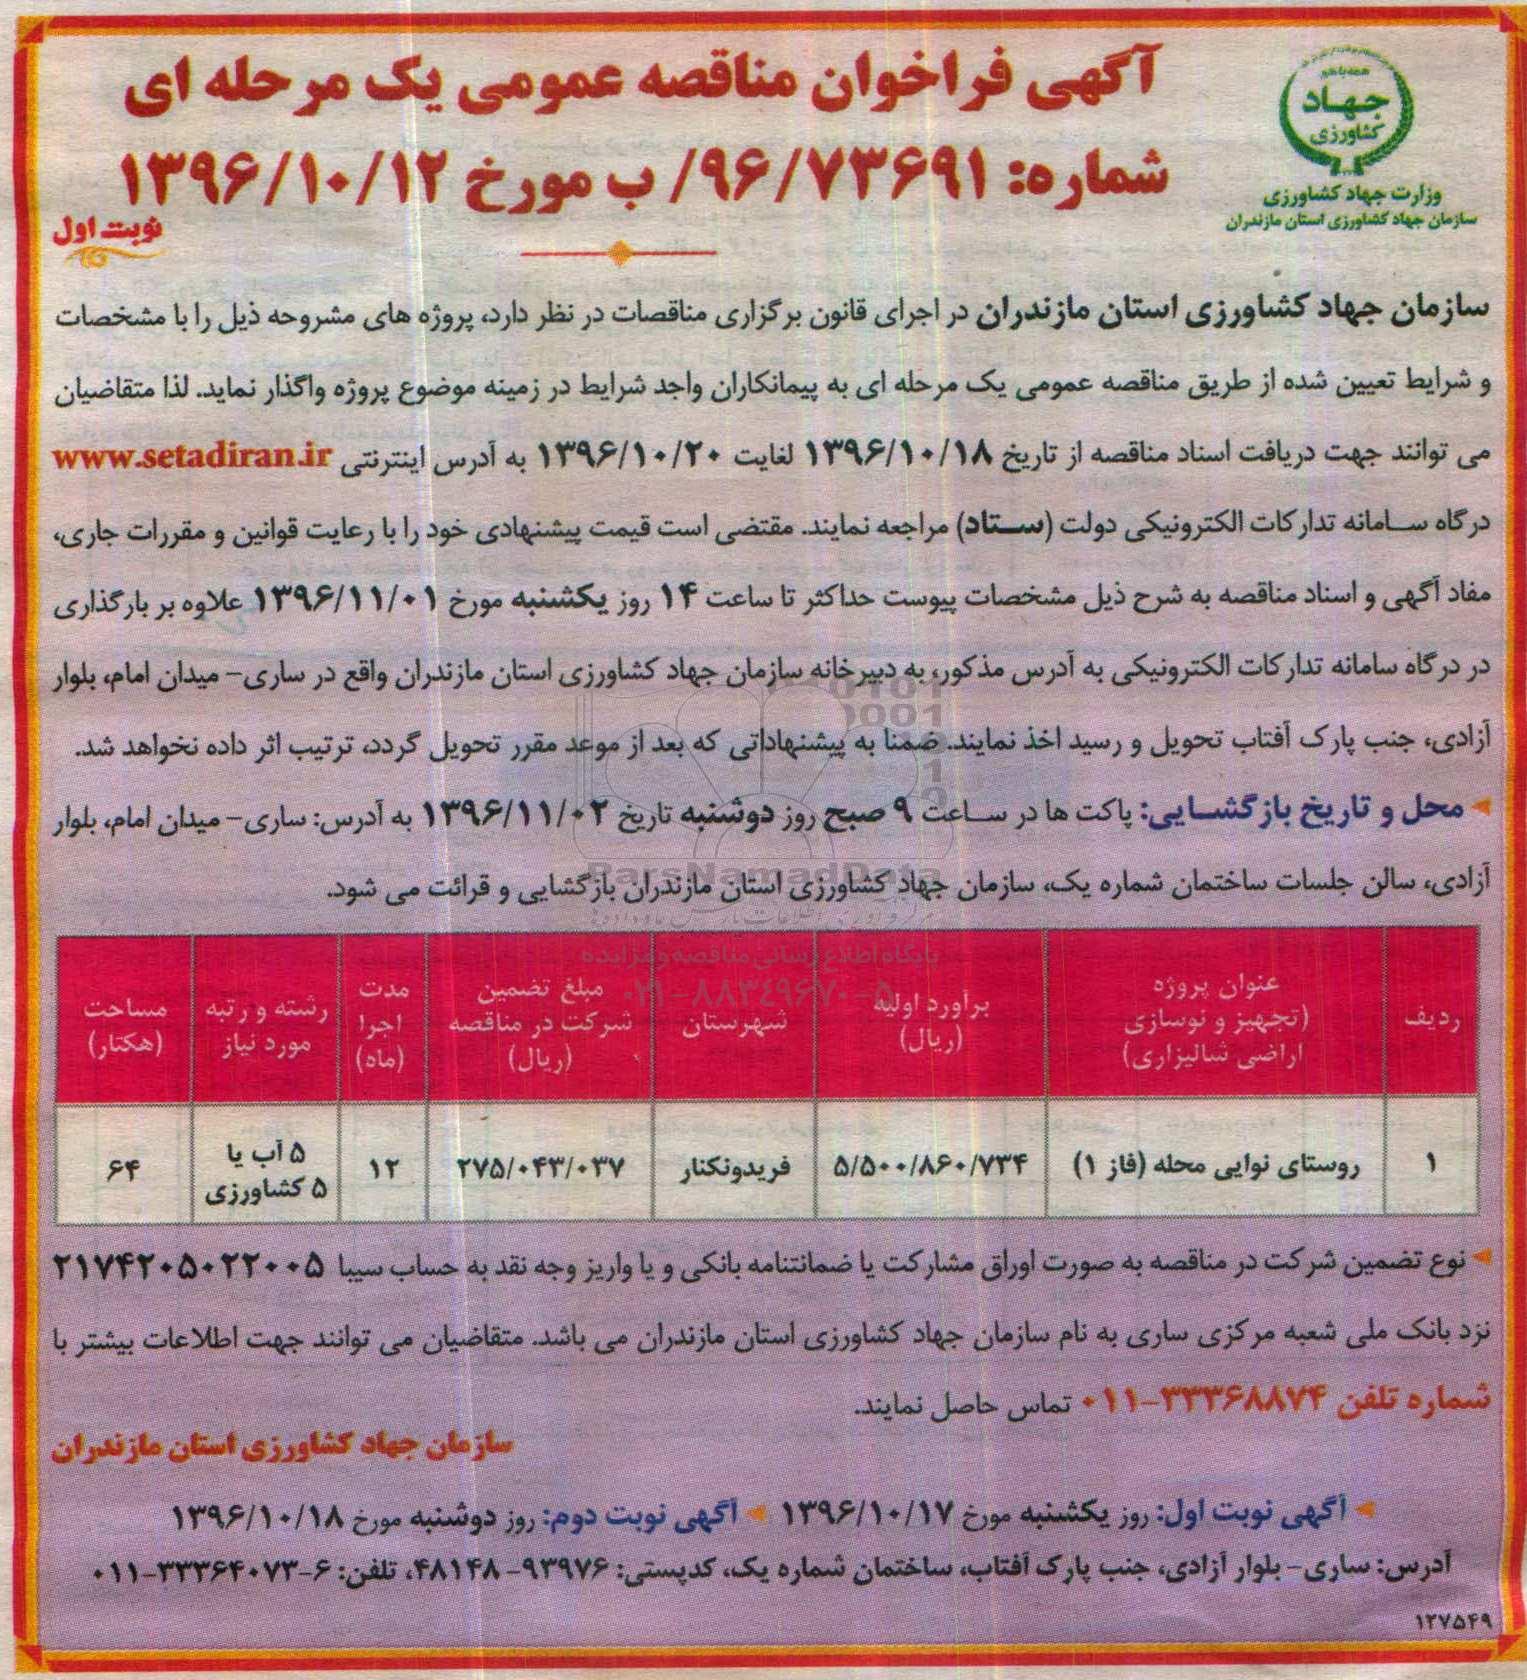 همه با هم
جهاد
کشاورزی
وزارت جهاد کشاورزی
سازمان جهاد کشاورزی استان مازندران
آگهی فراخوان مناقصه عمومی یک مرحله ای
شماره: ۹۶/۷۳۶۹۱/ ب مورخ ۱۳۹۶/۱۰/۱۲
نوبت اول
سازمان جهاد کشاورزی استان مازندران در اجرای قانون برگزاری مناقصات در نظر دارد، پروژه های مشروحه ذیل را با مشخصات
و شرایط تعیین شده از طریق مناقصه عمومی یک مرحله ای به پیمانکاران واجد شرایط در زمینه موضوع پروژه واگذار نماید. لذا متقاضیان
می توانند جهت دریافت اسناد مناقصه از تاریخ ۱۳۹۶/۱۰/۱۸ لغایت ۱۳۹۶/۱۰/۲۰ به آدرس اینترنتی www.setadiran.ir
درگاه سامانه تدارکات الکترونیکی دولت (ستاد) مراجعه نمایند. مقتضی است قیمت پیشنهادی خود را با رعایت قوانین و مقررات جاری،
مفاد آگهی و اسناد مناقصه به شرح ذیل مشخصات پیوست حداکثر تا ساعت ۱۴ روز یکشنبه مورخ ۱۳۹۶/۱۱/۰۱ علاوه بر بارگذاری
در درگاه سامانه تدارکات الکترونیکی به آدرس مذکور، به دبیرخانه سازمان جهاد کشاورزی استان مازندران واقع در ساری- میدان امام، بلوار
آزادی، جنب پارک آفتاب تحویل و رسید اخذ نمایند. ضمنا به پیشنهاداتی که بعد از موعد مقرر تحویل گردد، ترتیب اثر داده نخواهد شد.
محل و تاریخ بازگشایی: پاکت ها در ساعت ۹ صبح روز دوشنبه تاریخ ۱۳۹۶/۱۱/۰۲ به آدرس: ساری- میدان امام، بلوار
آزادی، سالن جلسات ساختمان شماره یک، سازمان جهاد کشاورزی استان مازندران بازگشایی و قرائت می شود.
ParsNamadData
پایگاه اطلاع رسانی مناقصه و مزایده
۰۲۱-۸۸۳۴۹۶۷۰-۵
ردیف | عنوان پروژه (تجهیز و نوسازی اراضی شالیزاری) | برآورد اولیه (ریال) | شهرستان | مبلغ تضمین شرکت در مناقصه (ریال) | مدت اجرا (ماه) | رشته و رتبه مورد نیاز | مساحت (هکتار)
۱ | روستای نوایی محله (فاز ۱) | ۵/۵۰۰/۸۶۰/۷۳۴ | فریدونکنار | ۲۷۵/۰۴۳/۰۳۷ | ۱۲ | ۵ آب یا ۵ کشاورزی | ۶۴
نوع تضمین شرکت در مناقصه به صورت اوراق مشارکت یا ضمانتنامه بانکی و یا واریز وجه نقد به حساب سیبا ۲۱۷۴۲۰۵۰۲۲۰۰۵
نزد بانک ملی شعبه مرکزی ساری به نام سازمان جهاد کشاورزی استان مازندران می باشد. متقاضیان می توانند جهت اطلاعات بیشتر با
شماره تلفن ۳۳۳۶۸۸۷۴-۰۱۱ تماس حاصل نمایند.
سازمان جهاد کشاورزی استان مازندران
آگهی نوبت اول: روز یکشنبه مورخ ۱۳۹۶/۱۰/۱۷ آگهی نوبت دوم: روز دوشنبه مورخ ۱۳۹۶/۱۰/۱۸
آدرس: ساری- بلوار آزادی، جنب پارک آفتاب، ساختمان شماره یک، کدپستی: ۹۳۹۷۶-۴۸۱۴۸، تلفن: ۶-۳۳۳۶۴۰۷۳-۰۱۱
۱۲۷۵۴۹